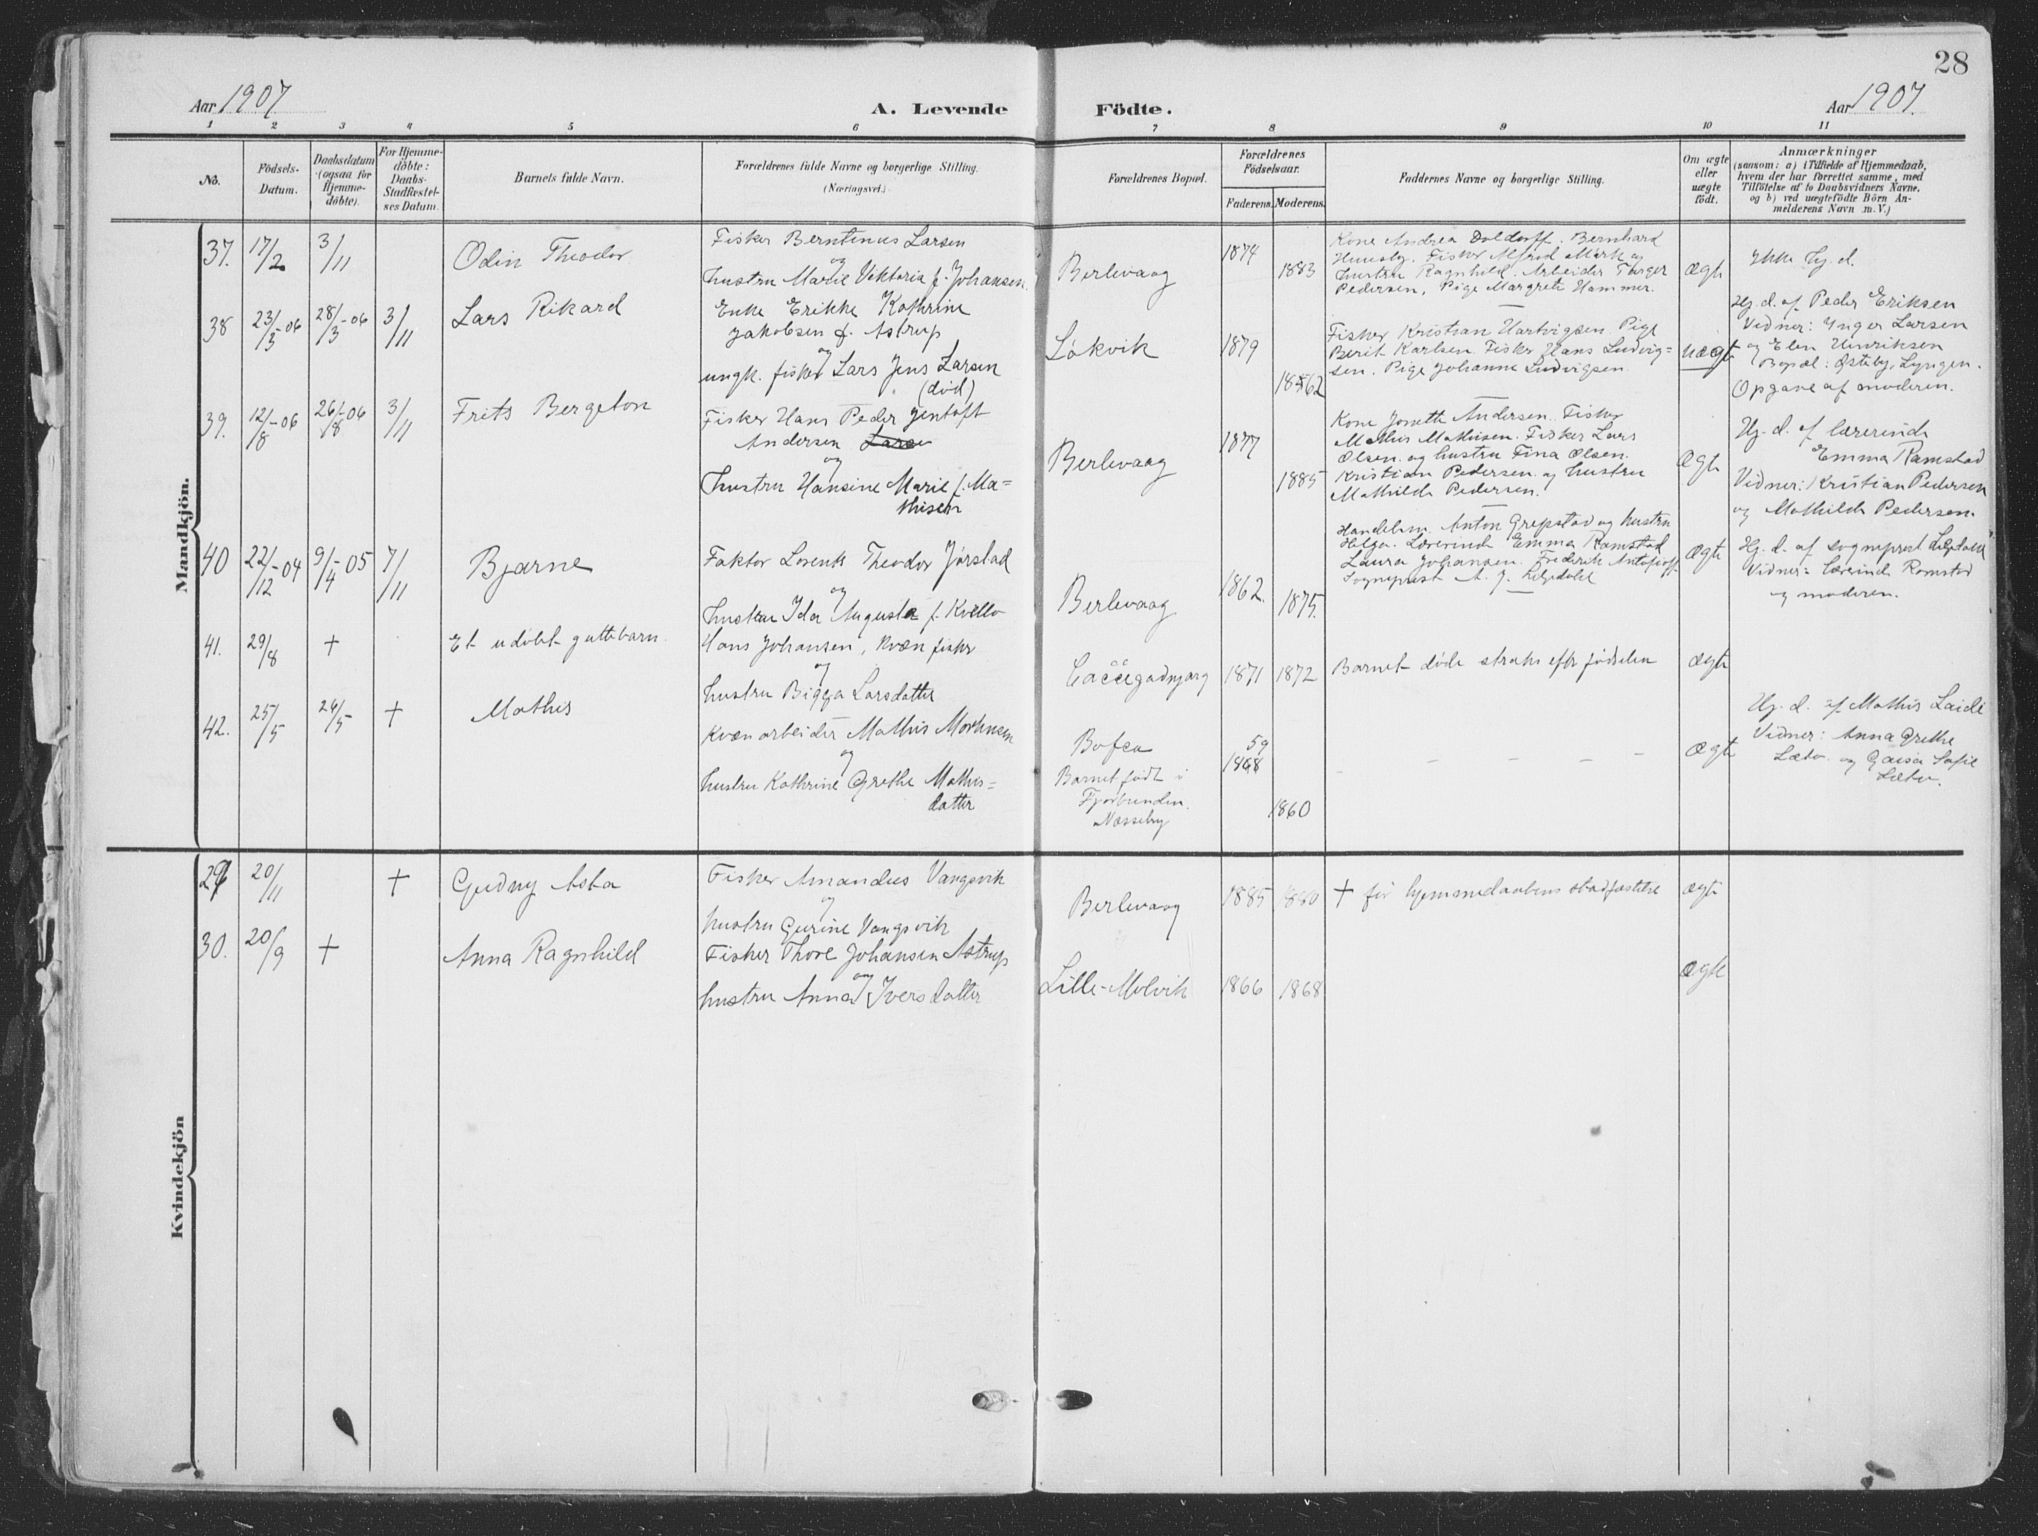 28
Aar 1907
A. Levende Födte.
Aar 1907.
1 2 3 4 5 6 7 8 9 10 11
No.
Födsels-
Datum.
Daabsdatum
(ogsaa for
Hjemme-
döbte).
For Hjemme-
döbte:
Daabs-
Stadfæstel-
ses Datum.
Barnets fulde Navn.
Forældrenes fulde Navne og borgerlige Stilling.
(Næringsvei.)
Forældrenes Bopæl.
Forældrenes
Födselsaar.
Faderens. Moderens.
Faddernes Navne og borgerlige Stilling.
Om ægte
eller
uægte
födt.
Anmærkninger
(saasom: a) i Tilfælde af Hjemmedaab,
hvem der har forrettet samme, med
Tilföielse af to Daabsvidners Navne,
og b) ved uægtefödte Börn An-
melderens Navn m. V.)
Mandkjön.
37. 17/2 3/11
Odin Theodor
Fisker Berntinus Larsen
og
hustru Marie Viktoria f. Johansen.
Berlevaag
1874
1883
Kone Andrea Doldorff. Bernhard
Huuseby. Fisker Alfred Mørk og
hustru Ragnhild. Arbeider Thrger
Pedersen, Pige Margrete Hammer.
ægte
Ikke hj. d.
38 23/3-06 28/3-06 3/11
Lars Rikard
Enke Erikke Kathrine
Jakobsen f. Astrup
og
ungk. fisker Lars Jens Larsen
(död)
Løkvik
1879
1862
Fisker Kristian Hartvigsen. Pige
Berit Karlsen. Fisker Hans Ludvig=
sen. Pige Johanne Ludvigsen.
uægte
Hj. d. af Peder Eriksen
Vidner: Inger Larsen
og Elen Henriksen
Bopæl: Østeby, Lyngen.
Opgave af moderen.
39. 12/8-06 26/8-06 3/11
Frits Bergeton
Fisker Hans Peder Jentoft
Andersen Larsen
og
hustru Hansine Marie f. Ma=
thisen
Berlevaag
1877
1885
Kone Jonette Andersen. Fisker
Mathis Mathisen. Fisker Lars
Olsen og hustru Tina Olsen.
Kristian Pedersen og hustru
Mathilde Pedersen.
Ægte
Hj. d. af lærerinde
Emma Ramstad
Vidner: Kristian Pedersen
og Mathilde Pedersen.
40 22/12-04 9/4-05 7/11
Bjarne
Faktor Lorents Theodor Jørstad
og
hustru Ida Augusta f. Kvello
Berlevaag
1862.
1875.
Handelsm. Anton Grepstad og hustru
Helga. Lærerinde Emma Ramstad
Laura Johansen. Frederik
Sogneprest A. J.
ægte
Hj. d. af sogneprest
Vidner: Lærerinde Ramstad
og moderen.
41. 29/8 +
Et udöbt guttebarn.
Hans Johansen, kvæn fisker
og
hustru Bigga Larsdatter
1871 1872
Barnet döde straks efter födselen
ægte
42. 25/5 26/5 +
Mathis
Kvæn arbeider Mathis
og
hustru Kathrine Grethe Mathis=
datter
Barnet födt i
Næsseby
59
1868
1860
- - - - -
ægte
Hj. d. af Mathis Laiti
Vidner: Anna Grethe
og Sofie
Kvindekjön
29 20/11 +
Gudny Asta
Fisker Amandus Vangsvik
og
hustru Gurine Vangsvik
Berlevaag
1885 1880
+ för hjemmedaabens stadfæstelse
ægte
30. 20/9 +
Anna Ragnhild
Fisker Thore Johansen Astrup
og
hustru Anna Iversdatter
Lille-Molvik
1866 1868
ægte